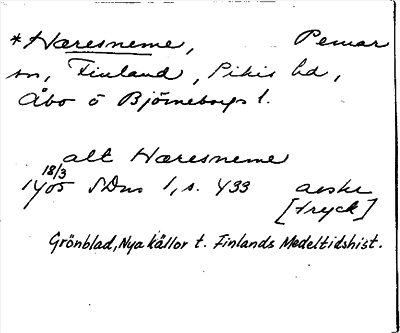 *Haresneme, Pemar
sn, Finland, Pikis hd,
Åbo o Björneborgs l.
alt Haresneme
18/3
1405 SDns 1, s. 433 avskr
[tryck]
Grönblad, Nya källor t. Finlands Medeltidshist.